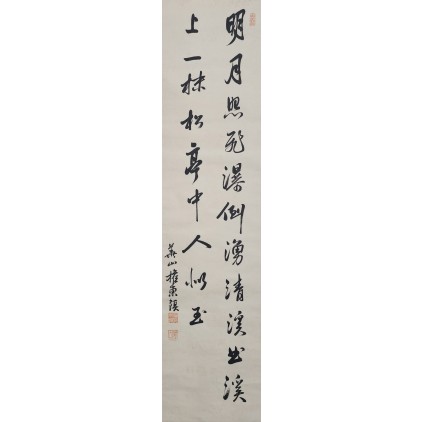 明月照飛瀑倒湧清溪出溪
上一株松亭中人似玉
山權東